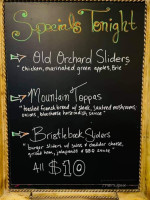 Specials Tonight
Old Orchard Sliders
"chicken, marinated green apples, Brie
Mountain Toppas
"toasted French bread w/ steak, sautéed mushrooms,
onions, blue cheese horseradish sauce"
Bristleback Sliders
"burger sliders w/ swiss & cheddar cheese,
grilled ham, jalapeño & BBQ sauce"
All $10